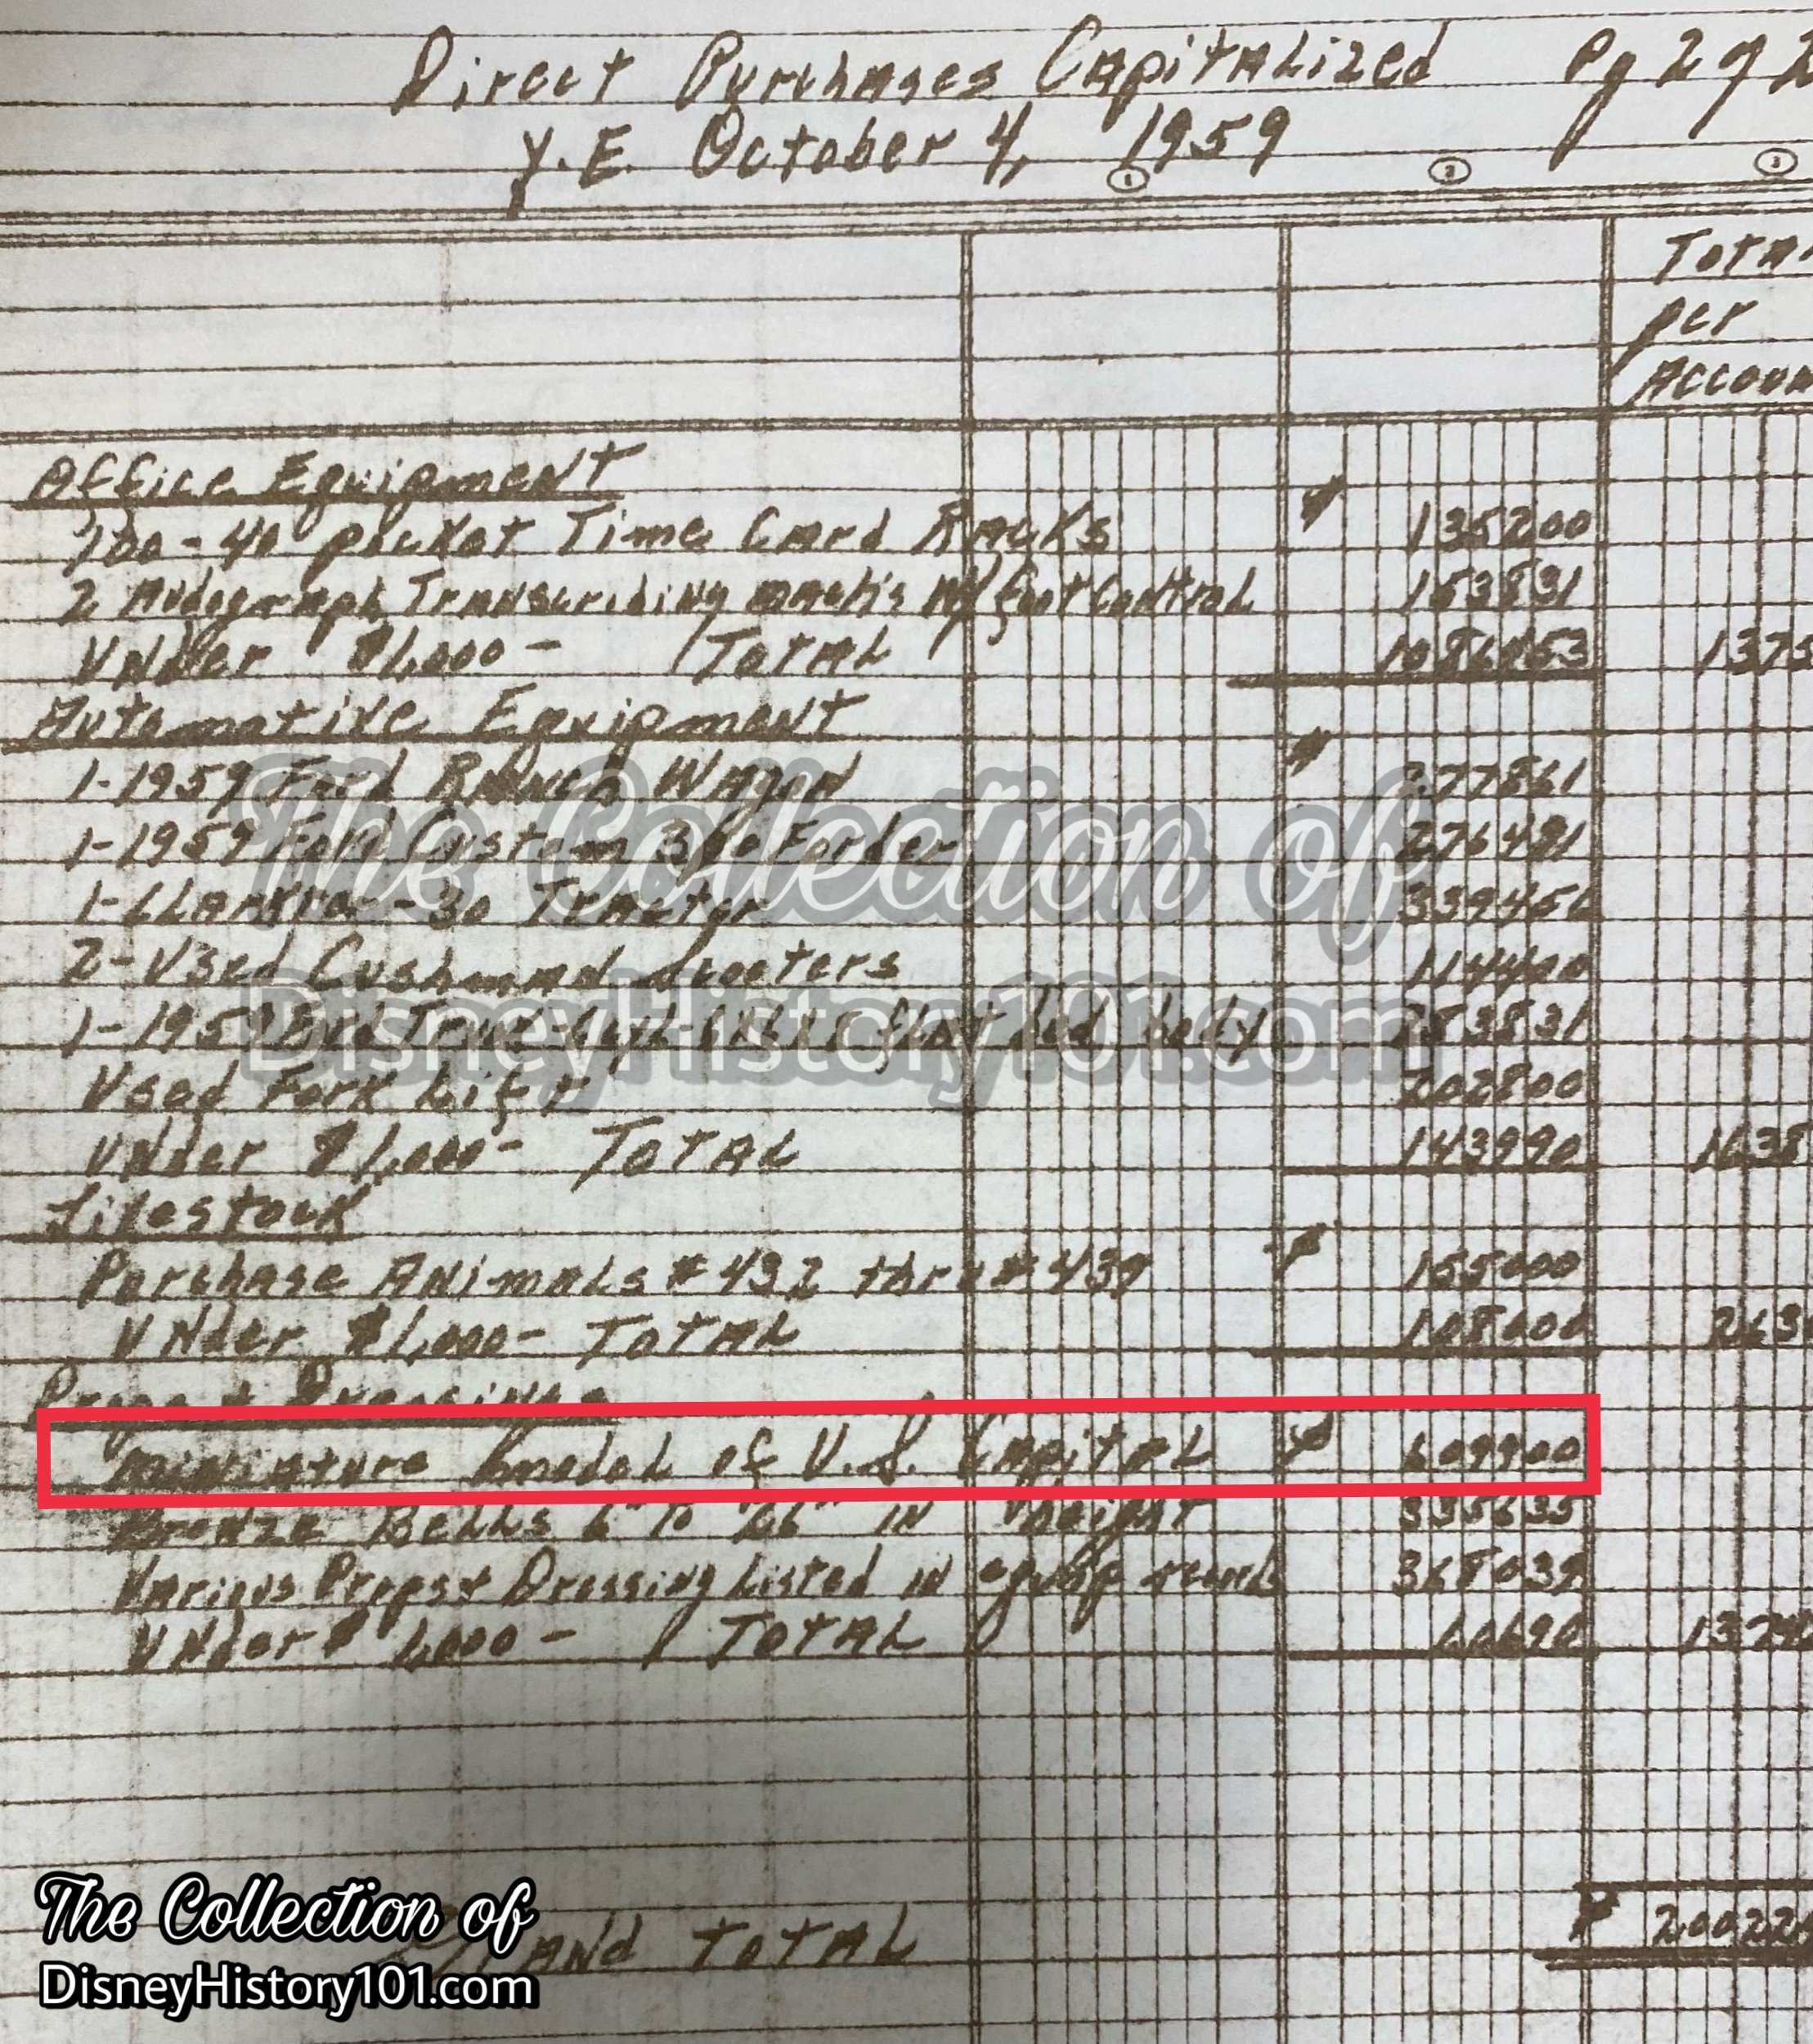 Direct Purchases Capitalized Pg 2 of 2
Y.E. October 4, 1959
1 2 3
Total
per
Accoun
Office Equipment
100-40 pocket Time Card Racks $ 135200
2 Audograph Transcribing mach's W/ foot control 153831
Under $1,000- Total 1375
Automotive Equipment
1-1959 Ford Ranch Wagon $ 277861
1-1959 Ford Custom 300 Fordor 276481
1-Clarktor-30 Tractor 33945
2-Used Cushman Scooters 114400
1-1959 Ford Truck flat bed body
Used Fork Lift 202800
Under $1,000- Total 143990 1638
Livestock
Purchase Animals #432 thru #439 $ 155000
Under $1,000- Total 108000 263
Props & Dressings
Miniature model of U.S. Capital $ 609900
Bronze Bells 6" to 26" in height 335635
Various Props & Dressing listed in equip record 368039
Under $1,000- Total 1324
Grand Total $ 200226
The Collection of
DisneyHistory101.com
The Collection of
DisneyHistory101.com